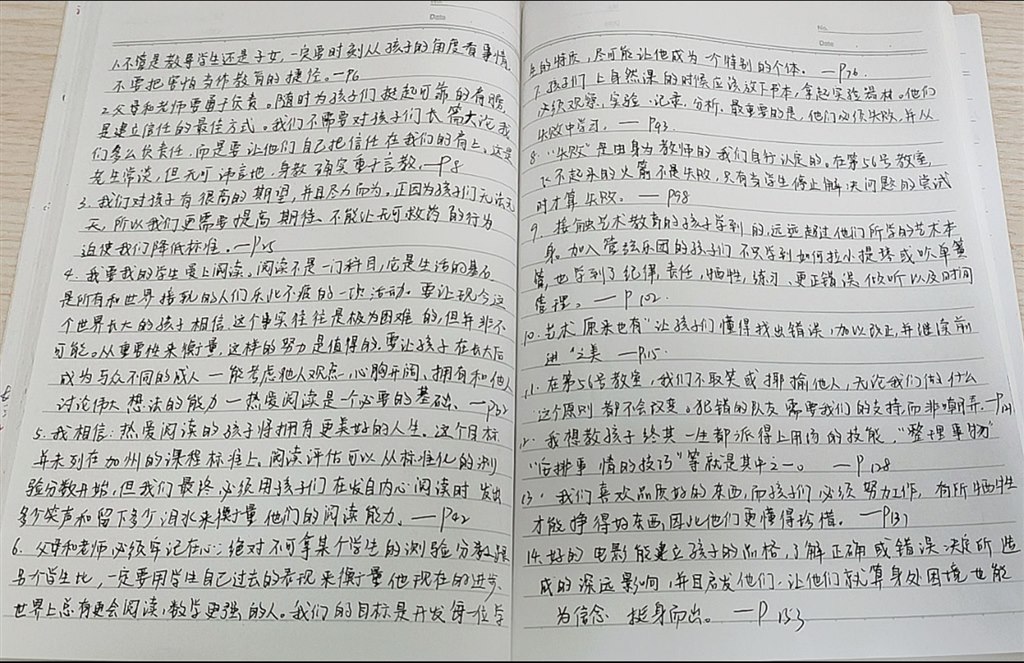 Date
1.不管是教导学生还是子女,一定要时刻从孩子的角度看事情,
不要把害怕当作教育的捷径。—P6
2.父母和老师要勇于负责。随时为孩子们挺起可靠的肩膀,
是建立信任的最佳方式。我们不需要对孩子们长篇大论我
们多么负责任,而是要让他们自己把信任在我们的肩上。这是
老生常谈,但无可讳言地,身教确实重于言教。—P8
3.我们对孩子有很高的期望,并且尽力而为。正因为孩子们无法无
天,所以我们更需要提高期待。不能让无可救药的行为
迫使我们降低标准。—P25
4.我要我的学生爱上阅读。阅读不是一门科目,它是生活的基石
是所有和世界接轨的人们乐此不疲的一项活动。要让现今这
个世界长大的孩子相信这个事实往往是极为困难的,但并非不
可能。从重要性来衡量,这样的努力是值得的。要让孩子在长大后
成为与众不同的成人—能考虑他人观点、心胸开阔、拥有和他人
讨论伟大想法的能力—热爱阅读是一个必要的基础。—P32
5.我相信:热爱阅读的孩子将拥有更美好的人生。这个目标
并未列在加州的课程标准上。阅读评估可以从标准化的测
验分数开始,但我们最终必须用孩子们在发自内心阅读时发出
多少笑声和留下多少泪水来衡量他们的阅读能力。—P42
6.父母和老师必须牢记在心:绝对不可拿某个学生的测验分数跟
另个学生比,一定要用学生自己过去的表现来衡量他现在的进步。
世界上总有更会阅读,数学更强的人。我们的目标是开发每一位学
No.
Date
生的特质,尽可能让他成为一个特别的个体。—P76.
7.孩子们上自然课的时候应该放下书本,拿起实验器材。他们
必须观察,实验,记录,分析,最重要的是,他们必须失败,并从
失败中学习。—P93.
8."失败"是由身为教师的我们自行认定的。在第56号教室,
飞不起来的火箭不是失败,只有当学生停止解决问题的尝试
时才算失败。—P98
9.接触艺术教育的孩子学到的,远远超过他们所学的艺术本
身。加入管弦乐团的孩子们不只学到如何拉小提琴或吹单簧
管,也学到了纪律,责任,牺牲,练习、更正错误,倾听以及时间
管理。—P102.
10.艺术原来也有"让孩子们懂得找出错误,加以改正,并继续前
进"之美—P15.
11.在第56号教室,我们不取笑或揶揄他人,无论我们做什么
这个原则都不会改变。犯错的队友需要我们的支持,而非嘲弄。
12.我想教孩子终其一生都派得上用场的技能,"整理事物"
"安排事情的技巧"等就是其中之一。—P128
13.我们喜欢品质好的东西,而孩子们必须努力工作,有所牺牲
才能挣得好东西,因此他们更懂得珍惜。—P137
14.好的电影能建立孩子的品格,了解正确或错误决定所造
成的深远影响,并且启发他们,让他们就算身处困境也能
为信念挺身而出。—P153